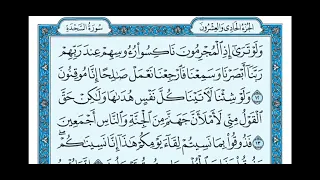 الجزء الحادي والعشرون
سورة السجدة
وَلَوْ تَرَىٰ إِذِ الْمُجْرِمُونَ نَاكِسُوا رُءُوسِهِمْ عِندَ رَبِّهِمْ
رَبَّنَا أَبْصَرْنَا وَسَمِعْنَا فَارْجِعْنَا نَعْمَلْ صَالِحًا إِنَّا مُوقِنُونَ
١٢ وَلَوْ شِئْنَا لَآتَيْنَا كُلَّ نَفْسٍ هُدَاهَا وَلَٰكِنْ حَقَّ
الْقَوْلُ مِنِّي لَأَمْلَأَنَّ جَهَنَّمَ مِنَ الْجِنَّةِ وَالنَّاسِ أَجْمَعِينَ
١٣ فَذُوقُوا بِمَا نَسِيتُمْ لِقَاءَ يَوْمِكُمْ هَٰذَا إِنَّا نَسِينَاكُمْ